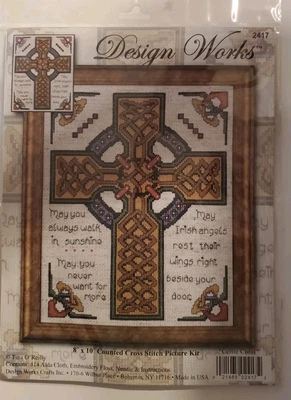 Design Works™
2417
May you
always walk
in sunshine
May you
never
want for
more
May
Irish angels
rest their
wings right
beside your
door
8" x 10" Counted Cross Stitch Picture Kit
Celtic Cross
© Tina O'Reilly
Contents: #14 Aida Cloth, Embroidery Floss, Needle & Instructions
Design Works Crafts Inc. • 170-6 Wilbur Place • Bohemia, NY 11716 • Made in USA